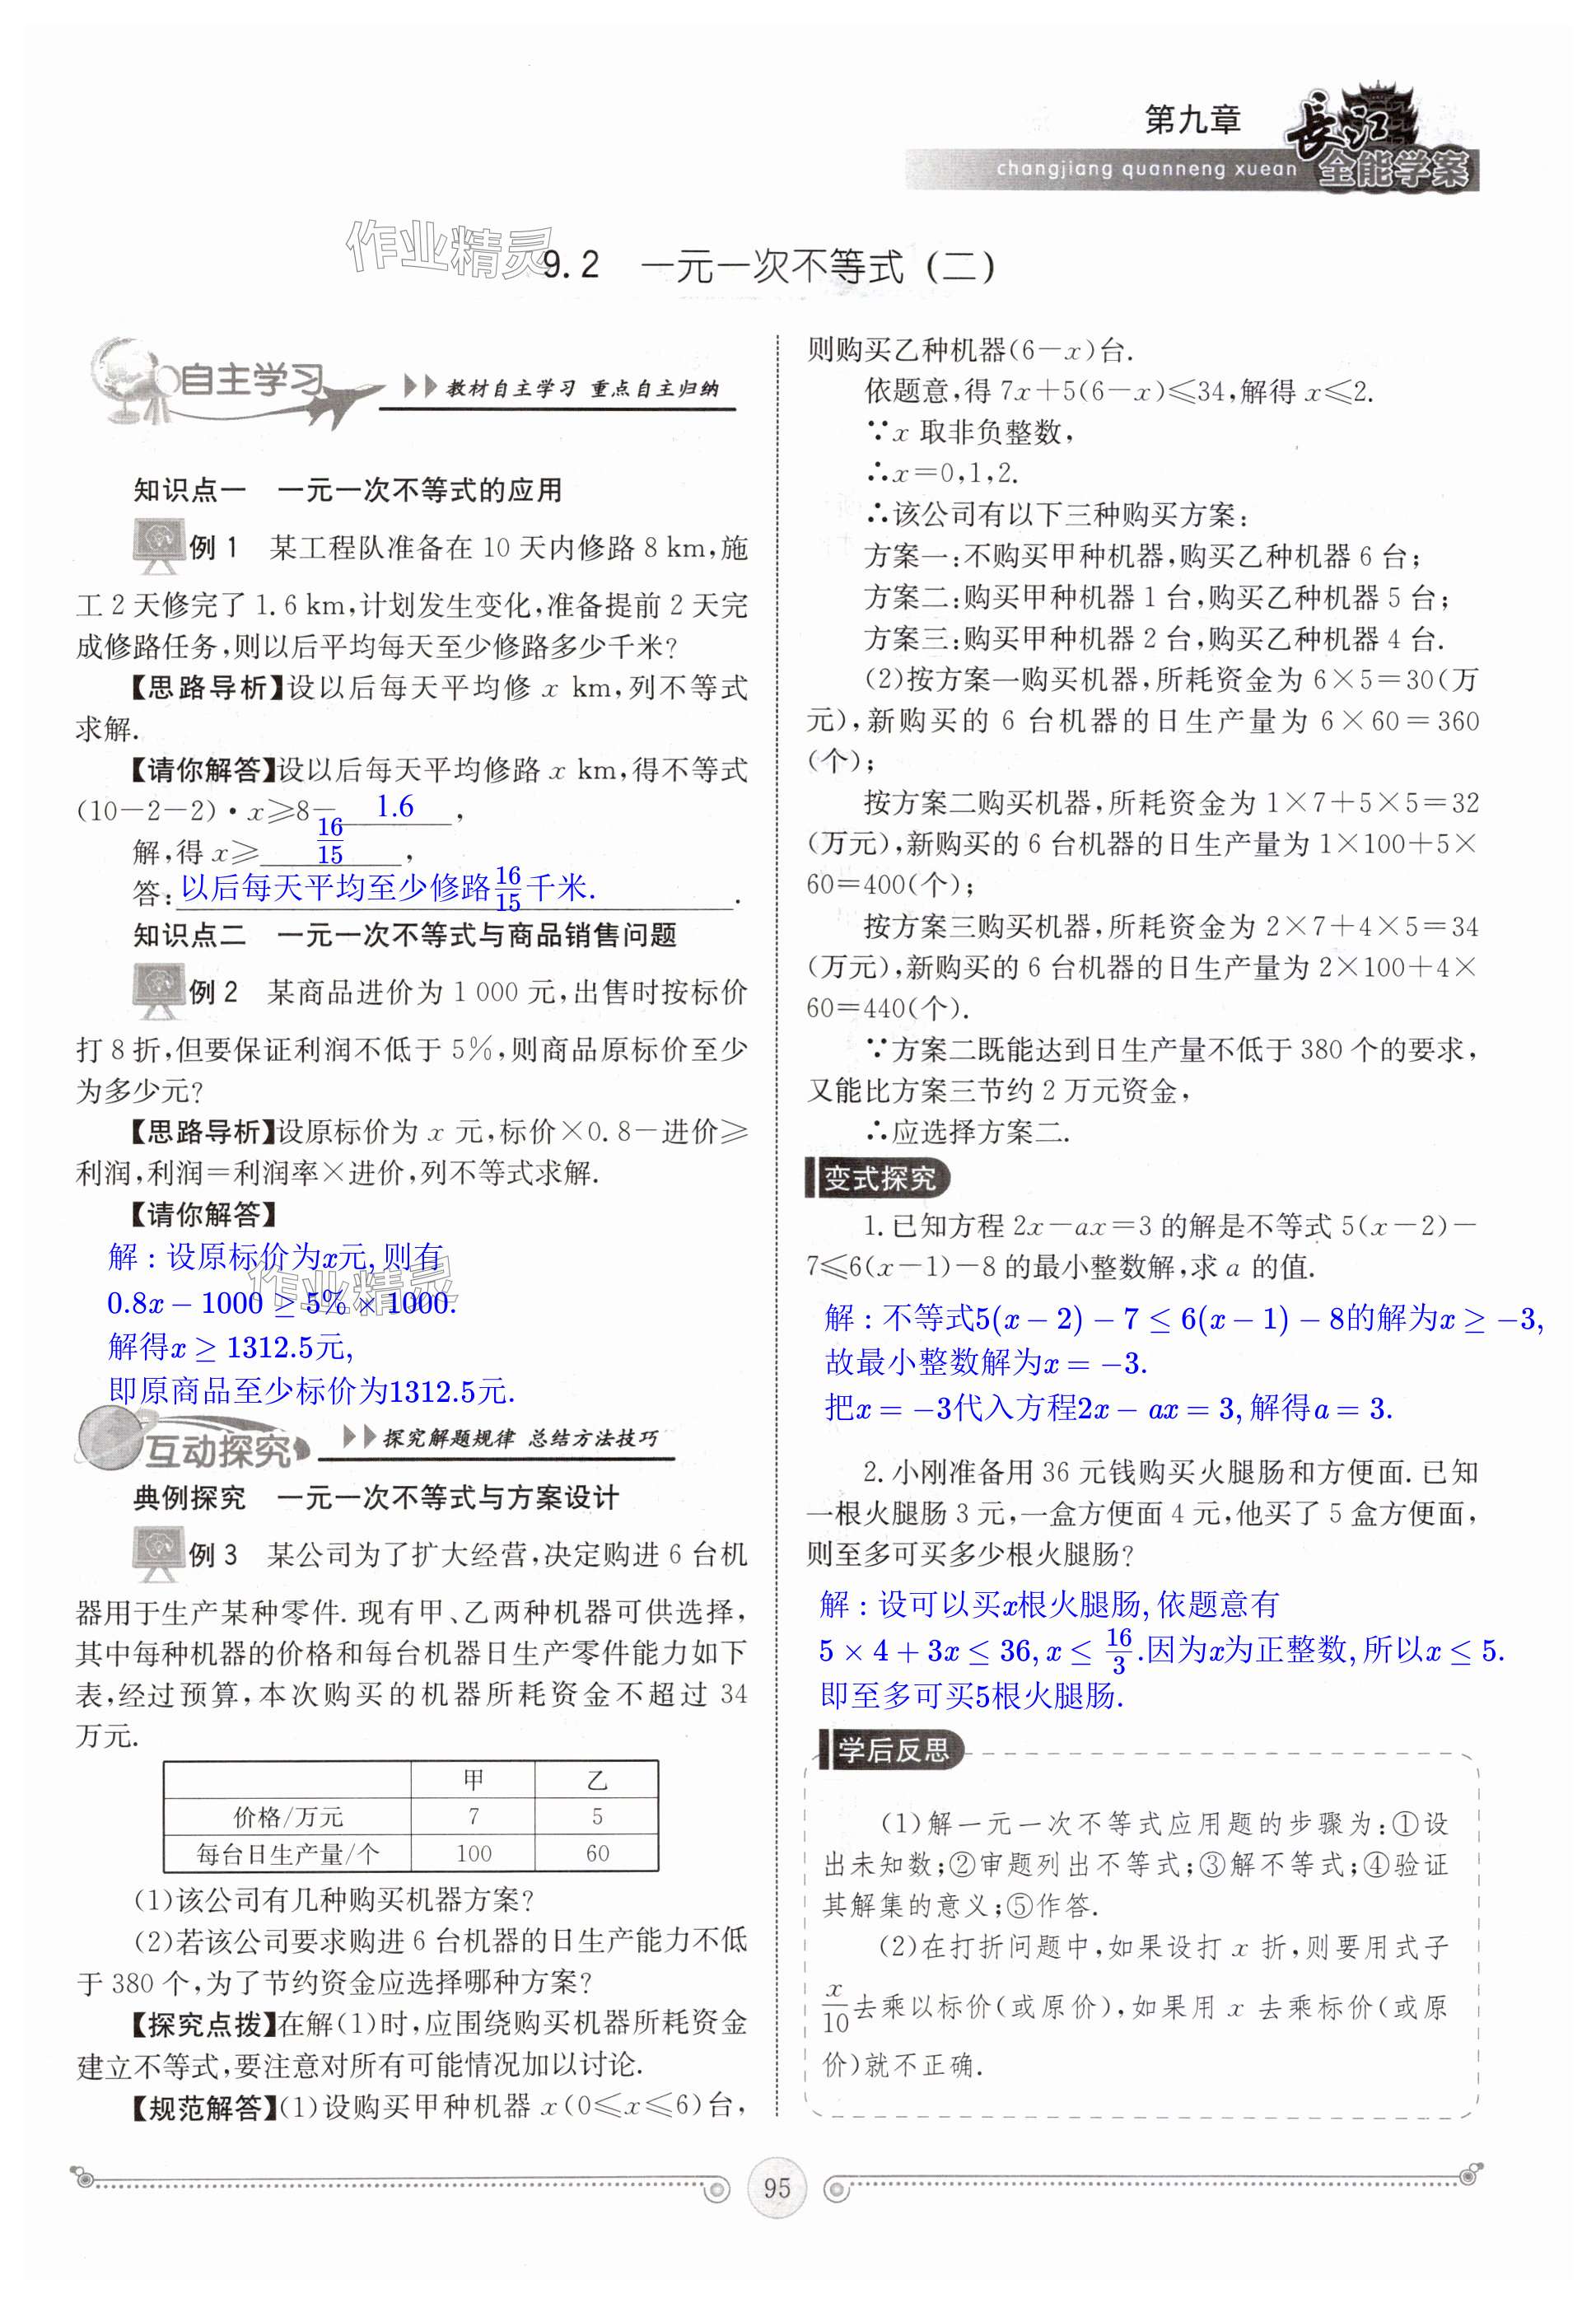 第九章
長江
changjiang quanneng xuean 全能学案
作业精灵
9.2 一元一次不等式(二)
自主学习 教材自主学习 重点自主归纳
知识点一 一元一次不等式的应用
例1 某工程队准备在 10 天内修路 8 km,施
工 2 天修完了 1.6 km,计划发生变化,准备提前 2 天完
成修路任务,则以后平均每天至少修路多少千米?
【思路导析】设以后每天平均修 x km,列不等式
求解.
【请你解答】设以后每天平均修路 x km,得不等式
(10－2－2)·x≥8－ 1.6 ,
解,得 x≥ 16/15 ,
答: 以后每天平均至少修路16/15千米. .
知识点二 一元一次不等式与商品销售问题
例2 某商品进价为 1 000 元,出售时按标价
打 8 折,但要保证利润不低于 5%,则商品原标价至少
为多少元?
【思路导析】设原标价为 x 元,标价×0.8－进价≥
利润,利润＝利润率×进价,列不等式求解.
【请你解答】
解:设原标价为x元,则有
作业精灵
0.8x－1000≥5%×1000.
解得x≥1312.5元,
即原商品至少标价为1312.5元.
互动探究 探究解题规律 总结方法技巧
典例探究 一元一次不等式与方案设计
例3 某公司为了扩大经营,决定购进 6 台机
器用于生产某种零件.现有甲、乙两种机器可供选择,
其中每种机器的价格和每台机器日生产零件能力如下
表,经过预算,本次购买的机器所耗资金不超过 34
万元.
甲 乙
价格/万元 7 5
每台日生产量/个 100 60
(1)该公司有几种购买机器方案?
(2)若该公司要求购进 6 台机器的日生产能力不低
于 380 个,为了节约资金应选择哪种方案?
【探究点拨】在解(1)时,应围绕购买机器所耗资金
建立不等式,要注意对所有可能情况加以讨论.
【规范解答】(1)设购买甲种机器 x(0≤x≤6)台,
则购买乙种机器(6－x)台.
依题意,得 7x＋5(6－x)≤34,解得 x≤2.
∵x 取非负整数,
∴x＝0,1,2.
∴该公司有以下三种购买方案:
方案一:不购买甲种机器,购买乙种机器 6 台;
方案二:购买甲种机器 1 台,购买乙种机器 5 台;
方案三:购买甲种机器 2 台,购买乙种机器 4 台.
(2)按方案一购买机器,所耗资金为 6×5＝30(万
元),新购买的 6 台机器的日生产量为 6×60＝360
(个);
按方案二购买机器,所耗资金为 1×7＋5×5＝32
(万元),新购买的 6 台机器的日生产量为 1×100＋5×
60＝400(个);
按方案三购买机器,所耗资金为 2×7＋4×5＝34
(万元),新购买的 6 台机器的日生产量为 2×100＋4×
60＝440(个).
∵方案二既能达到日生产量不低于 380 个的要求,
又能比方案三节约 2 万元资金,
∴应选择方案二.
变式探究
1.已知方程 2x－ax＝3 的解是不等式 5(x－2)－
7≤6(x－1)－8 的最小整数解,求 a 的值.
解:不等式5(x－2)－7≤6(x－1)－8的解为x≥－3,
故最小整数解为x＝－3.
把x＝－3代入方程2x－ax＝3,解得a＝3.
2.小刚准备用 36 元钱购买火腿肠和方便面.已知
一根火腿肠 3 元,一盒方便面 4 元,他买了 5 盒方便面,
则至多可买多少根火腿肠?
解:设可以买x根火腿肠,依题意有
5×4＋3x≤36,x≤16/3.因为x为正整数,所以x≤5.
即至多可买5根火腿肠.
学后反思
(1)解一元一次不等式应用题的步骤为:①设
出未知数;②审题列出不等式;③解不等式;④验证
其解集的意义;⑤作答.
(2)在打折问题中,如果设打 x 折,则要用式子
x/10去乘以标价(或原价),如果用 x 去乘标价(或原
价)就不正确.
95